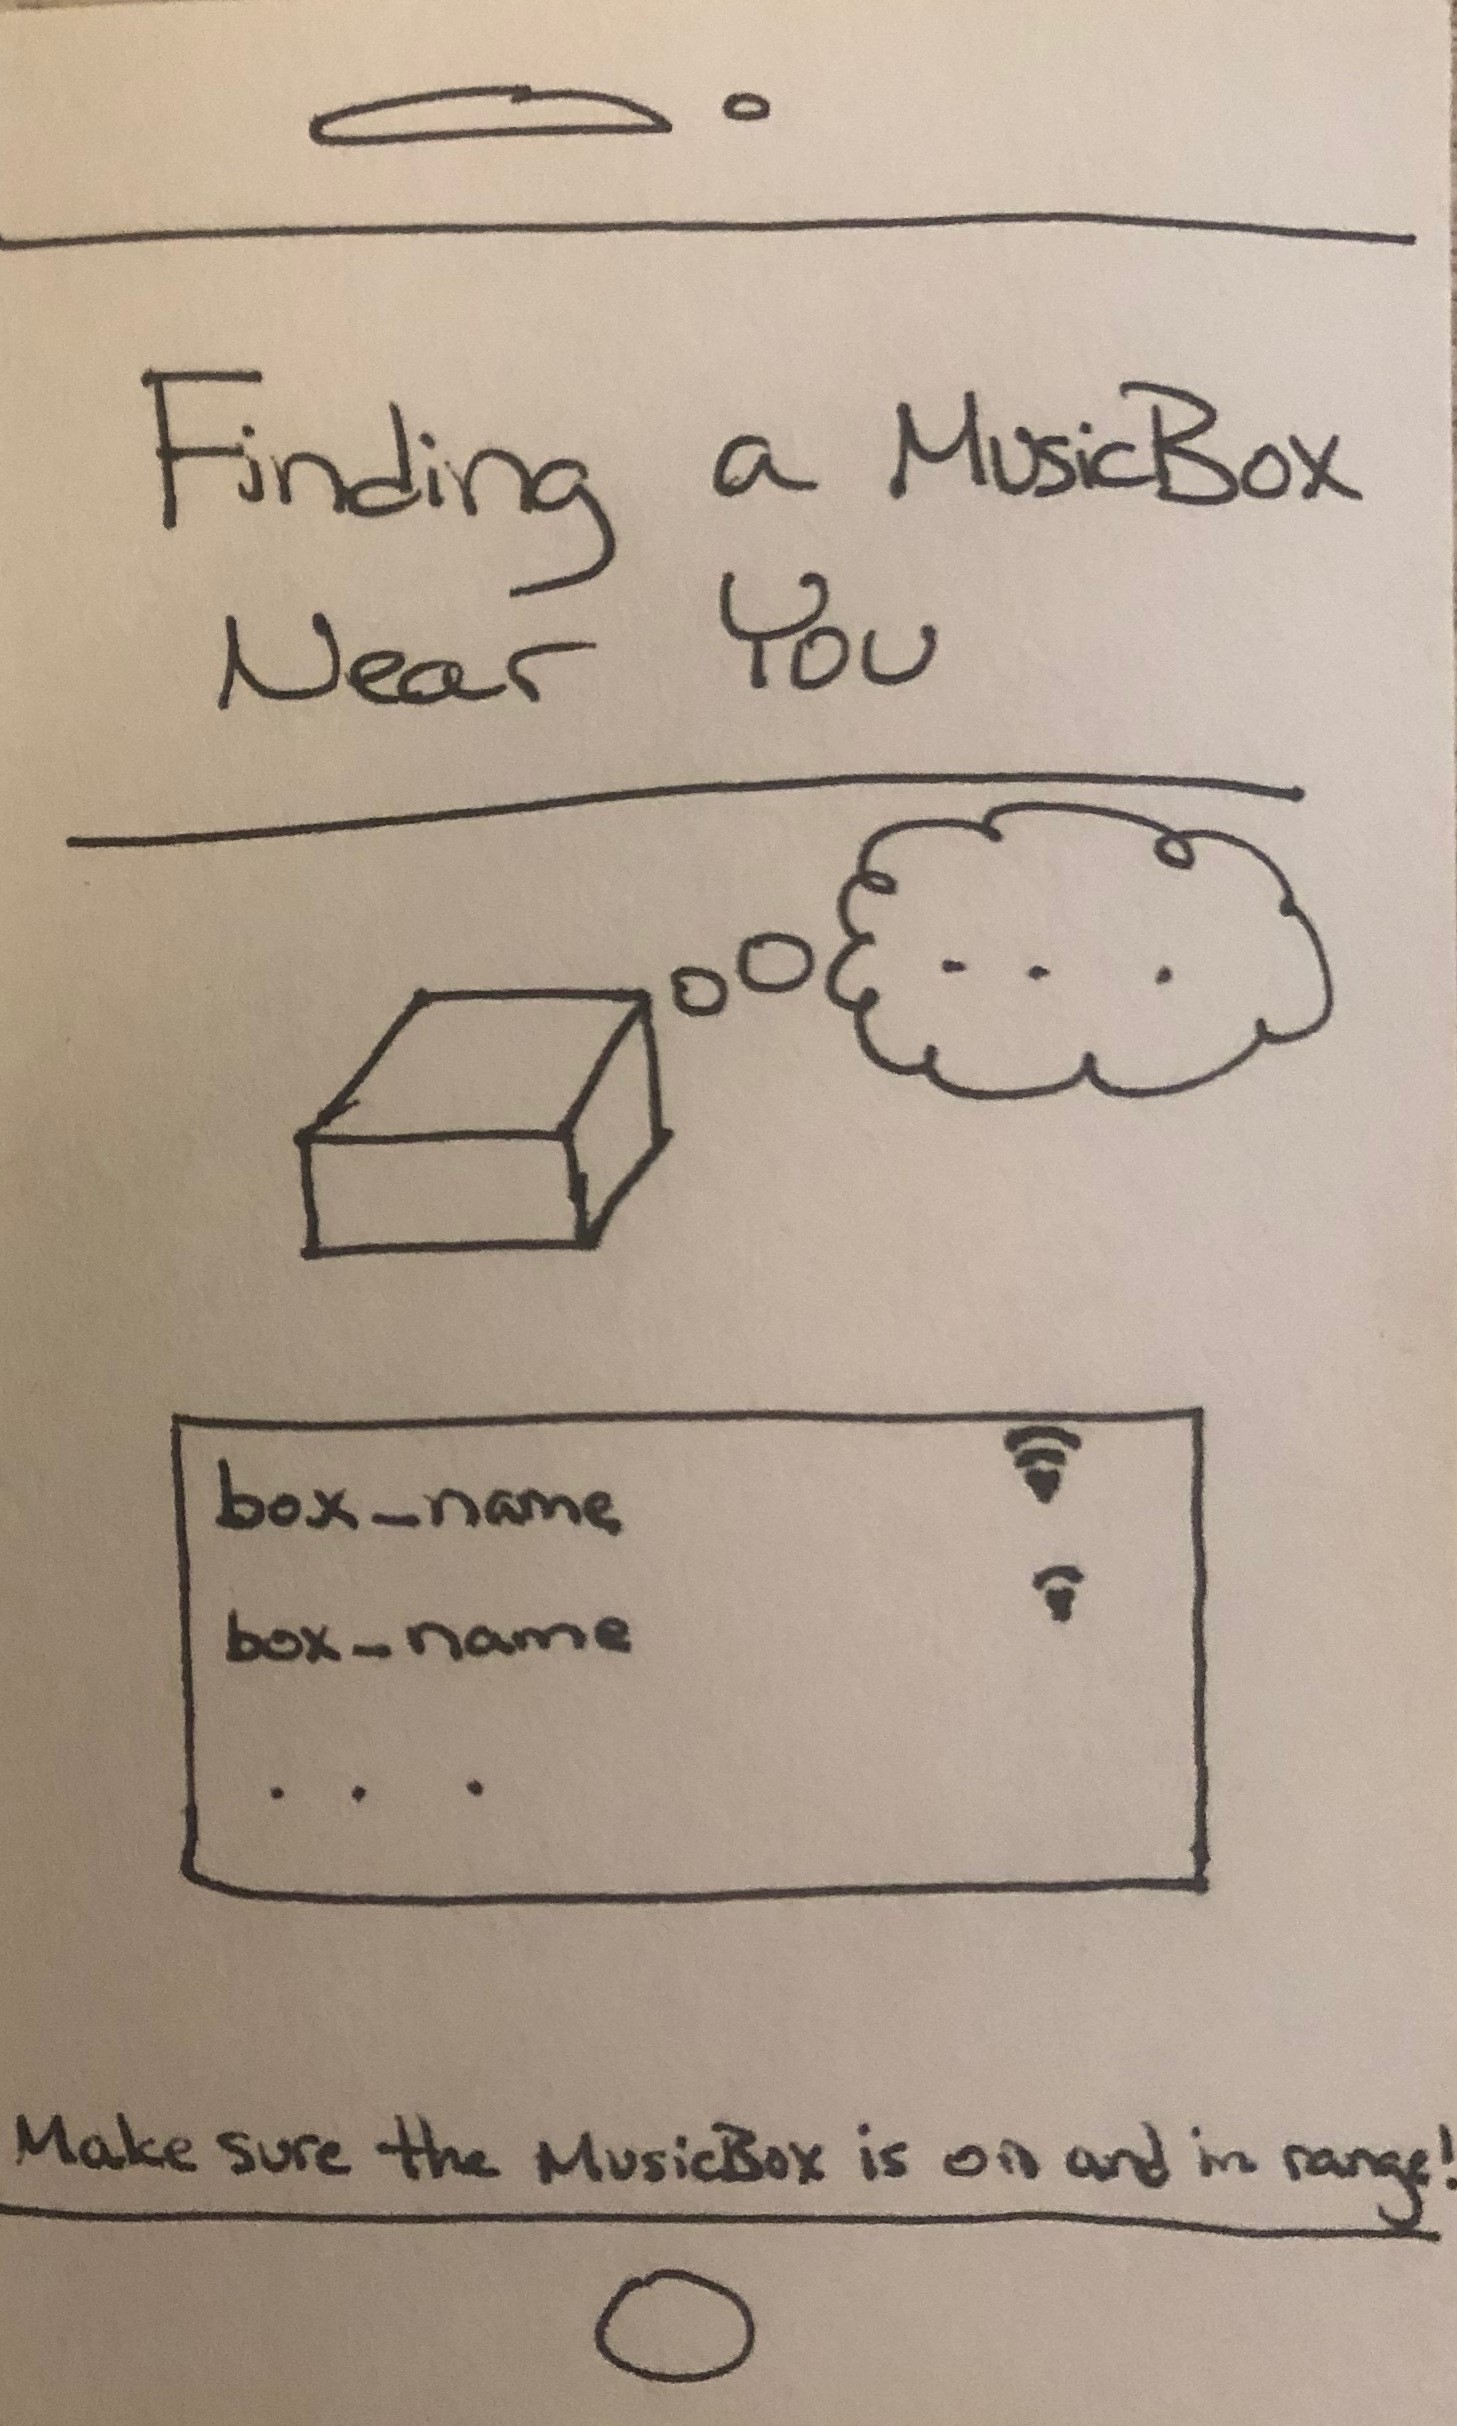 Finding a MusicBox
Near You
. . .
box_name
box_name
. . .
Make sure the MusicBox is on and in range!